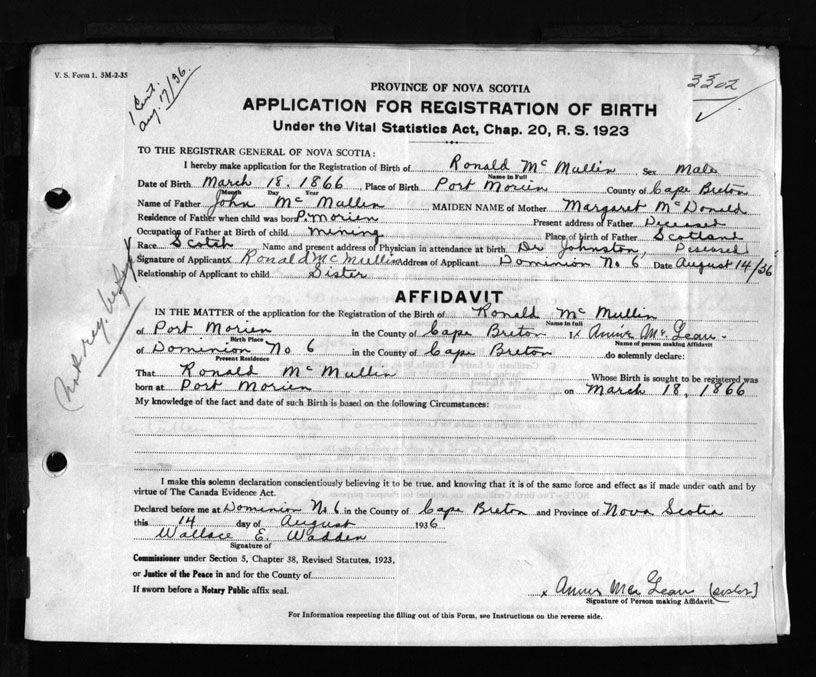 V. S. Form 1. 5M-2-35
1 Cert.
Aug. 17/36.
3302
PROVINCE OF NOVA SCOTIA
APPLICATION FOR REGISTRATION OF BIRTH
Under the Vital Statistics Act, Chap. 20, R. S. 1923
TO THE REGISTRAR GENERAL OF NOVA SCOTIA:
I hereby make application for the Registration of Birth of Ronald Mc Mullin Sex Male
Name in Full
Date of Birth March 18. 1866, Place of Birth Port Morien County of Cape Breton
Month Day Year
Name of Father John Mc Mullen MAIDEN NAME of Mother Margaret McDonald
Residence of Father when child was born P. morien Present address of Father Deceased
Occupation of Father at Birth of child mining Place of birth of Father Scotland
Race Scotch Name and present address of Physician in attendance at birth Dr Johnston, Desessed
Signature of Applicant x Ronald McMullin Address of Applicant Dominion No 6 Date August 14/36
Relationship of Applicant to child Sister
(not reg. before)
AFFIDAVIT
IN THE MATTER of the application for the Registration of the Birth of Ronald Mc Mullin
Name in full
of Port Morien in the County of Cape Breton I x Annie Mc Lean
Birth Place Name of person making Affidavit
of Dominion No 6 in the County of Cape Breton do solemnly declare:
Present Residence
That Ronald Mc Mullin Whose Birth is sought to be registered was
born at Port Morien on March 18, 1866
My knowledge of the fact and date of such Birth is based on the following Circumstances:
I make this solemn declaration conscientiously believing it to be true, and knowing that it is of the same force and effect as if made under oath and by
virtue of The Canada Evidence Act.
Declared before me at Dominion No 6 in the County of Cape Breton and Province of Nova Scotia
this 14 day of August 1936
Wallace E. Wadden
Signature of
Commissioner under Section 5, Chapter 38, Revised Statutes, 1923,
or Justice of the Peace in and for the County of
If sworn before a Notary Public affix seal.
x Annie Mc Lean (sister)
Signature of Person making Affidavit.
For Information respecting the filling out of this Form, see Instructions on the reverse side.